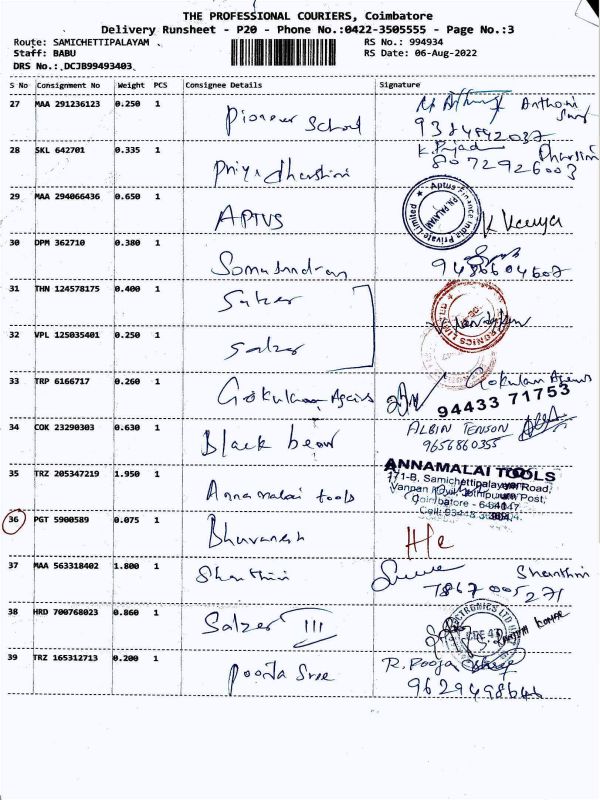 THE PROFESSIONAL COURIERS, Coimbatore
Delivery Runsheet - P20 - Phone No.:0422-3505555 - Page No.:3
Route: SAMICHETTIPALAYAM
RS No.: 994934
Staff: BABU
RS Date: 06-Aug-2022
DRS No.: DCJB99493403
S No Consignment No Weight PCS Consignee Details Signature
27 MAA 291236123 0.250 1 Pioneer School Anthoni
9384842037
28 SKL 642701 0.335 1 Priyadharshini K. Dharsini
8072926003
29 MAA 294066436 0.650 1 APTUS
Aptus Finance India Private Limited
P.N. PALAYAM
30 DPM 362710 0.380 1 9486604607
31 THN 124578175 0.400 1 Salzer
32 VPL 125035401 0.250 1 Salzer
33 TRP 6166717 0.260 1 Gokulam Gokulam
94433 71753
34 COK 23290303 0.630 1 Black bear ALBIN TENSON
9656860355
35 TRZ 205347219 1.950 1 Annamalai tools
ANNAMALAI TOOLS
Samichettipalayam Road,
Jothipuram Post,
Coimbatore - 641047
36 PGT 5900589 0.075 1 Bhuvanesh
37 MAA 563318402 1.800 1 Shanthini Shanthini
7867005271
38 HRD 700768023 0.860 1 Salzer III
39 TRZ 165312713 0.200 1 Pooja Sree R. Pooja